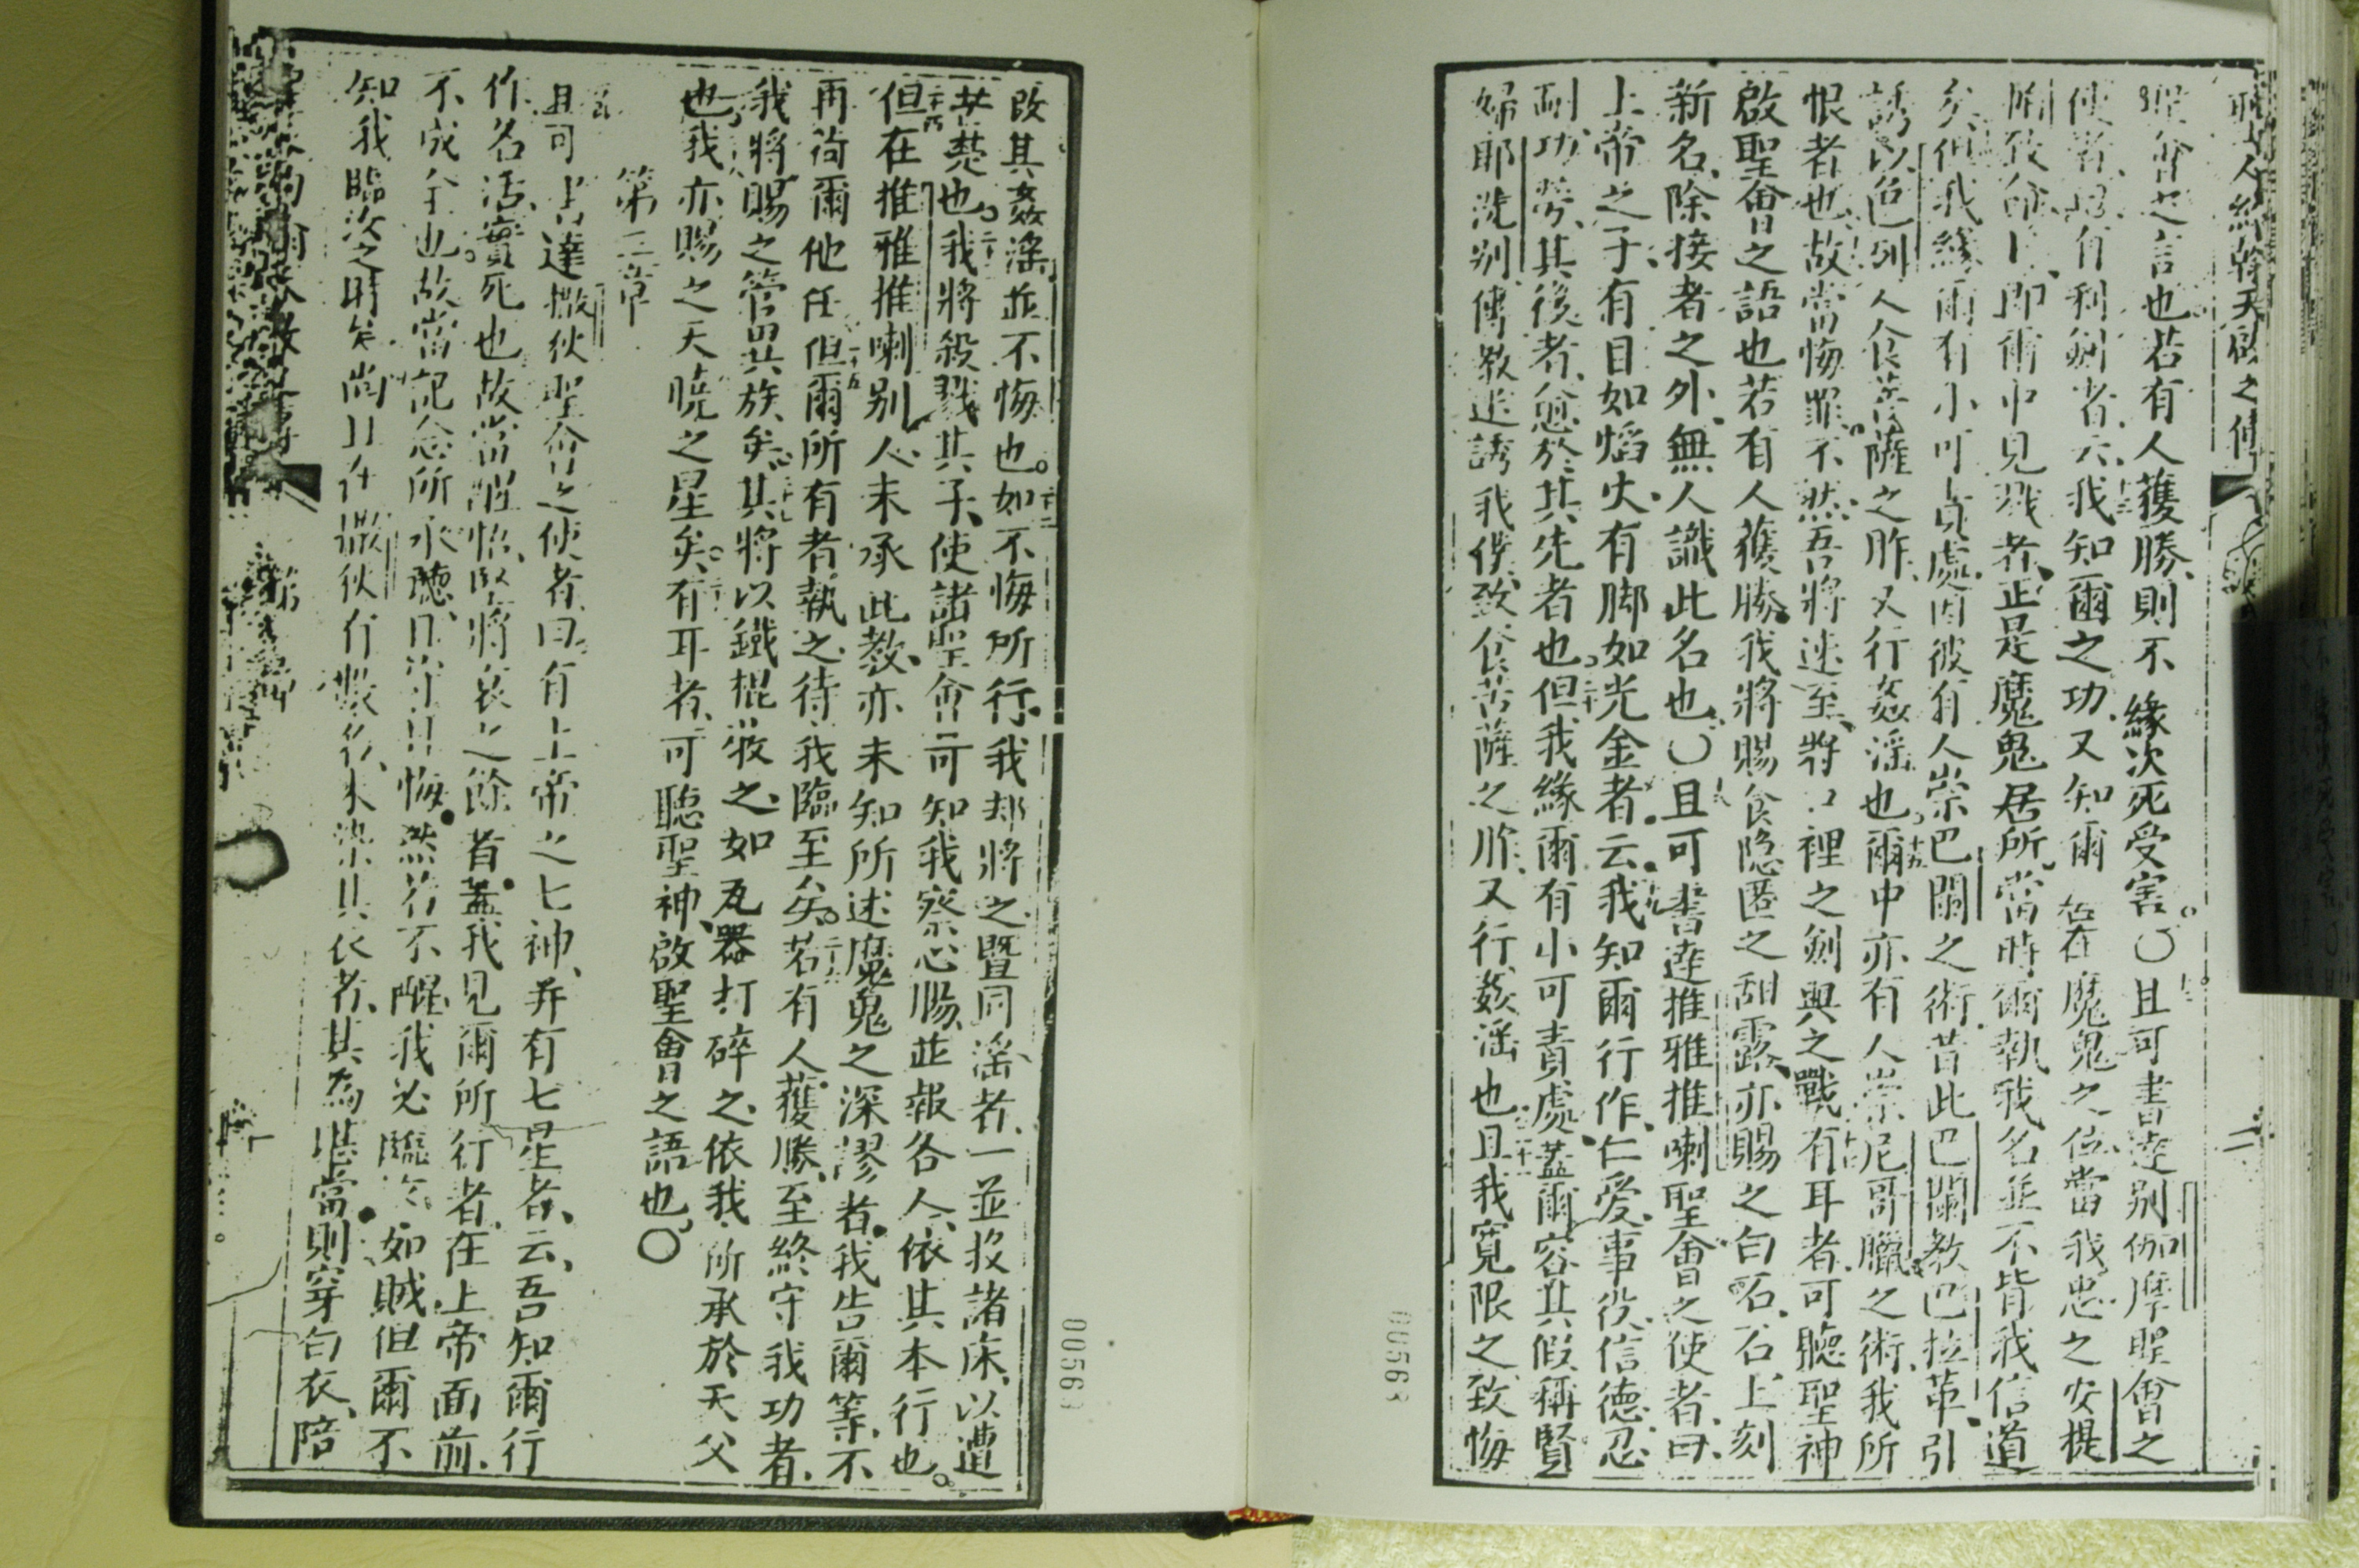 聖會之言也若有人獲勝則不緣次死受害〇且可書達別伽摩聖會之
使者曰有利劍者云我知爾之功又知爾居在魔鬼之位當我忠之安提
即爾中見戮者正是魔鬼居所當時爾執我名並不背我信道
矣但我緣爾有小可責處因彼有人崇巴闌之術昔此巴闌教巴拉革引
誘以色列人食菩薩之胙又行姦淫也爾中亦有人崇尼哥臘之術我所
恨者也故當悔罪不然吾將速至將口裡之劍與之戰有耳者可聽聖神
啟聖會之語也若有人獲勝我將賜食隐匿之甜露亦賜之白石石上刻
新名除接者之外無人識此名也〇且可書達推雅推喇聖會之使者曰
上帝之子有目如焰火有脚如光金者云我知爾行作仁愛事役信德忍
耐功勞其後者愈於其先者也但我緣爾有小可責處蓋爾容其假稱賢
婦耶洗别傳教迷誘我僕致食菩薩之胙又行姦淫也且我寬限之致悔
00568
改其姦淫並不悔也如不悔所行我却將之暨同淫者一並投諸床以遭
苦楚也我將殺戮其子使諸聖會可知我察心膓並報各人依其本行也
但在推雅推喇别人未承此教亦未知所述魔鬼之深謬者我告爾等不
再荷爾他任但爾所有者執之待我臨至矣若有人獲勝至終守我功者
我將賜之管異族矣其將以鐵棍牧之如瓦器打碎之依我所承於天父
也我亦賜之天曉之星矣有耳者可聽聖神啟聖會之語也〇
第三章
且可書達撒狄聖會之使者曰有上帝之七神并有七星者云吾知爾行
作名活實死也故當醒悟堅將衰之餘者蓋我見爾所行者在上帝面前
不成全也故當記念所承聽且守且悔然若不醒我必臨爾如賊但爾不
知我臨汝之時矣尚且在撒狄有數名未染其衣者其為堪當則穿白衣陪